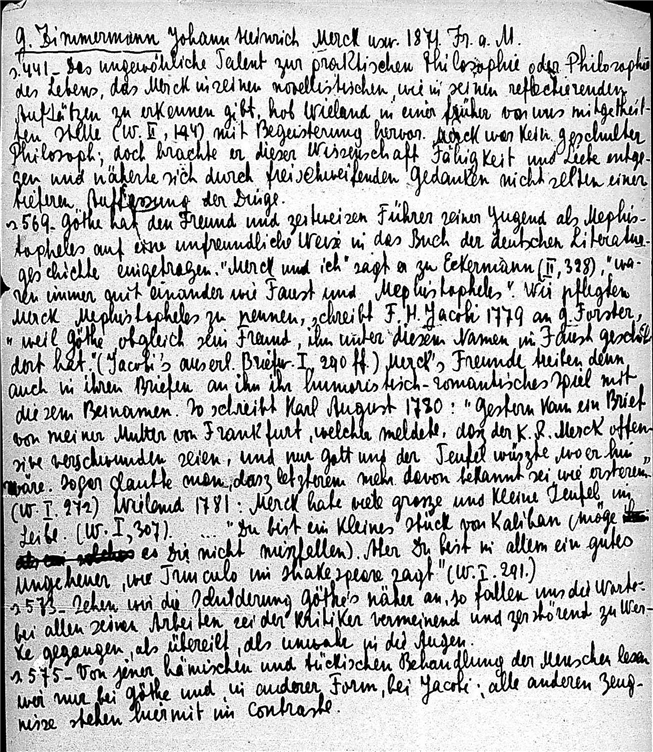 G. Zimmermann Johann Heinrich Merck usw. 1871. Fr. a. M.
s. 441 - Das ungewöhliche Talent zur praktischen Philosophie oder Philosophie
des Lebens, das Merck in seinen novellistischen, wie in seinen reflectierenden
Aufsätzen zu erkennen gibt, hob Wieland in einer früher von uns mitgetheil-
ten Stelle (W. II, 194) mit Begeisterung hervor. Merck war kein geschulter
Philosoph; doch brachte er dieser Wissenschaft Fähigkeit und Liebe entge-
gen und näherte sich durch freischweifenden Gedanken nicht selten einer
tieferen Auffassung der Dinge.
s. 569 - Göthe hat den Freund und zeitweisen Führer seiner Jugend als Mephis-
topheles auf eine unfreundliche Weise in das Buch der deutschen Literatur-
geschichte eingetragen. "Merck und ich" sagt er zu Eckermann (II, 328), "wa-
ren immer mit einander wie Faust und Mephistopheles". Wir pflegten
Merck Mephistopheles zu nennen, schreibt F. H. Jacobi 1779 an G. Forster,
"weil Göthe obgleich sein Freund, ihn unter diesem Namen in Faust geschil-
dert hat." (Jacobi's auserl. Briefw. I, 290 ff.) Merck's Freunde treiben denn
auch in ihren Briefen an ihn ihr humoristisch-romantisches Spiel mit
diesem Beinamen. So schreibt Karl August 1780: "Gestern kam ein Brief
von meiner Mutter von Frankfurt, welcher meldete, dasz der K. R. Merck offen-
sive verschwunden seien, und nur Gott und der Teufel wüszte, wo er hin
wäre. Sogar glaubte man, dasz letzterem mehr davon bekannt sei wie ersterem"
(W. I. 272) Wieland 1781: Merck habe viele grosze und kleine Teufel im
Leibe. (W. I, 307). ... "Du bist ein kleines Stück von Kaliban (möge
es Die nicht misfallen). Aber Du bist in allem ein gutes
Ungeheuer, wie Trinculo im Shakespeare sagt" (W. I. 291.)
s. 573 - Sehen wir die Schilderung Göthe's näher an, so fallen uns die Worte
bei allen seinen Arbeiten sei der Kritiker verneinend und zerstörend zu Wer-
ke gegangen, als übereilt, als unwahr in die Augen.
s. 575 - Von jener hämischen und tückischen Behandlung der Menschen lesen
wir nur bei Göthe und in anderer Form, bei Jacobi; alle anderen Zeug-
nisse stehen hiermit im Contraste.